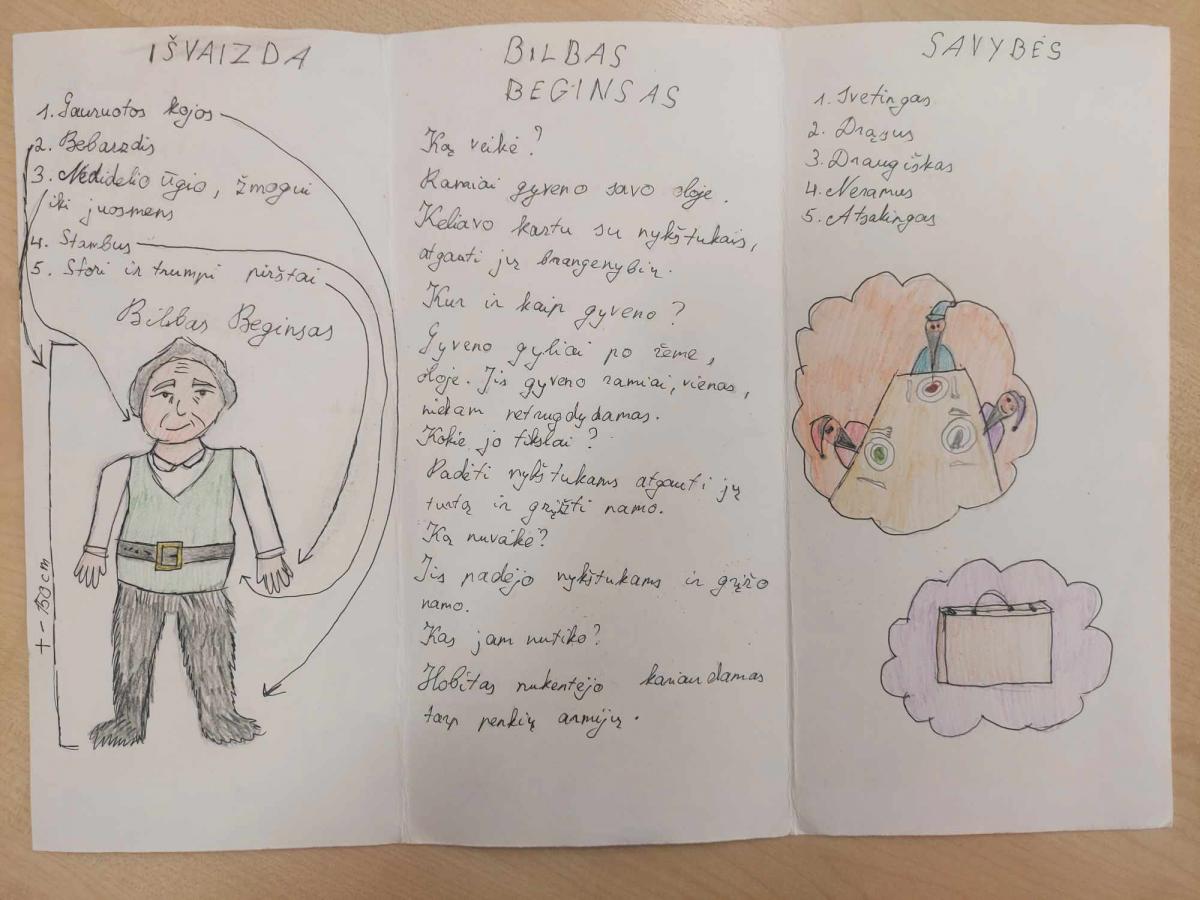 IŠVAIZDA
1. Gauruotos kojos
2. Bebarzdis
3. Nedidelio ūgio, žmogui
iki juosmens
4. Stambus
5. Stori ir trumpi pirštai
Bilbas Beginsas
+ - 150 cm
BILBAS
BEGINSAS
Ką veikė?
Ramiai gyveno savo oloje.
Keliavo kartu su nykštukais,
atgauti jų brangenybių.
Kur ir kaip gyveno?
Gyveno gyliai po žeme,
oloje. Jis gyveno ramiai, vienas,
niekam netrugdydamas.
Kokie jo tikslai?
Padėti nykštukams atgauti jų
turtą ir grįžti namo.
Ką nuveikė?
Jis padėjo nykštukams ir grįžo
namo.
Kas jam nutiko?
Hobitas nukentėjo kariaudamas
tarp penkių armijų.
SAVYBĖS
1. Svetingas
2. Drąsus
3. Draugiškas
4. Neramus
5. Atsakingas